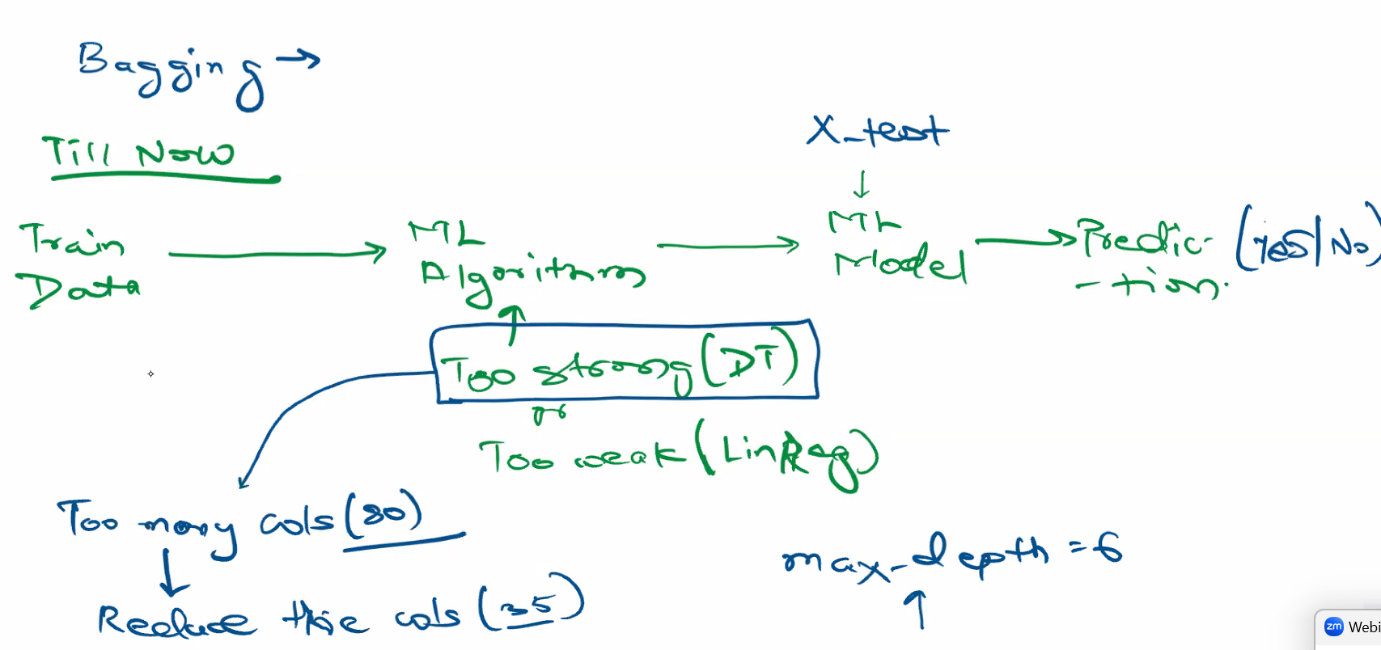 Bagging →
Till Now
X_test
↓
Train Data → ML Algorithms → ML Model → Predic-tion. (Yes/No)
↑
Too strong (DT)
or
Too weak (LinReg)
Too many cols (80)
↓
Reduce the cols (35)
max_depth = 6
↑
zm Webi